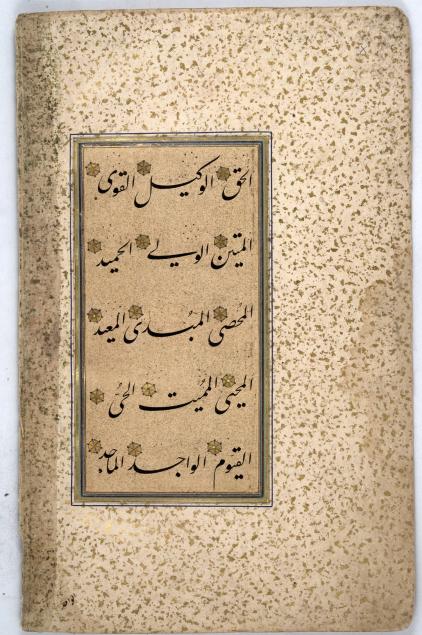 الحق الوكيل القوى
المتين الولي الحميد
المُحصى المبدى المعيد
المحيى المميت الحىُّ
القيوم الواجد الماجد